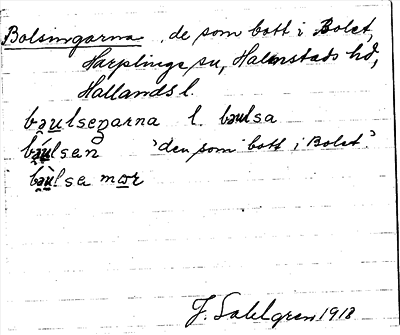 Bolsingarna, de som bott i Bolet,
Harplinge sn, Halmstads hd,
Hallands l.
bəulseŋarna l. bəulsa
bəúlsan 'den som bott i Bolet.'
bəùlsa mor
J. Sahlgren 1918